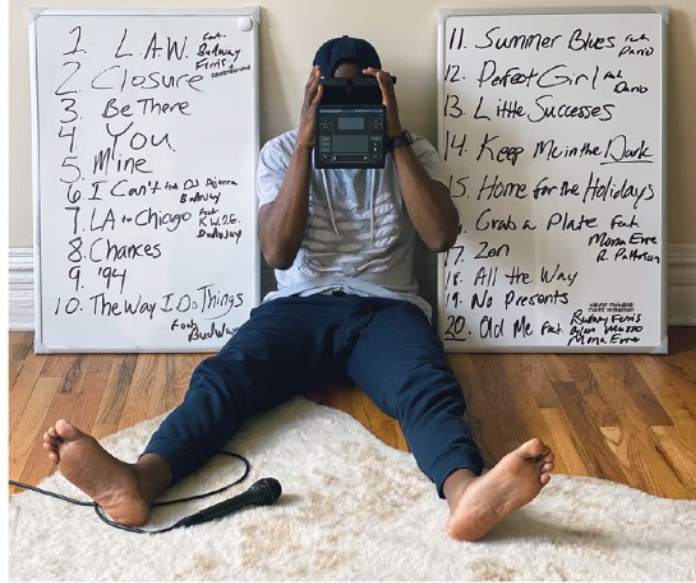 1. L.A.W. feat.
Budway
Ferris
2. Closure
3. Be There
4. You
5. Mine
6. I Can't feat. DJ
Budway
7. LA to Chicago feat.
K.W.I.E.
Budway
8. Chances
9. '94
10. The Way I Do Things
Feat.
Budway
11. Summer Blues feat.
Dario
12. Perfect Girl feat.
Dario
13. Little Successes
14. Keep Me in the Dark
15. Home for the Holidays
Grab a Plate feat.
Mona Evre
R. Patterson
17. Zen
18. All the Way
19. No Presents
20. Old Me feat.
Ferris
Dylan Musso
Mona Evre